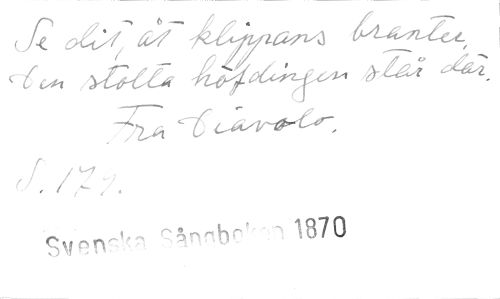 Se dit, åt klippans branter,
Den stolta höfdingen står där.
Fra Diavolo.
S. 179.
Svenska Sångboken 1870